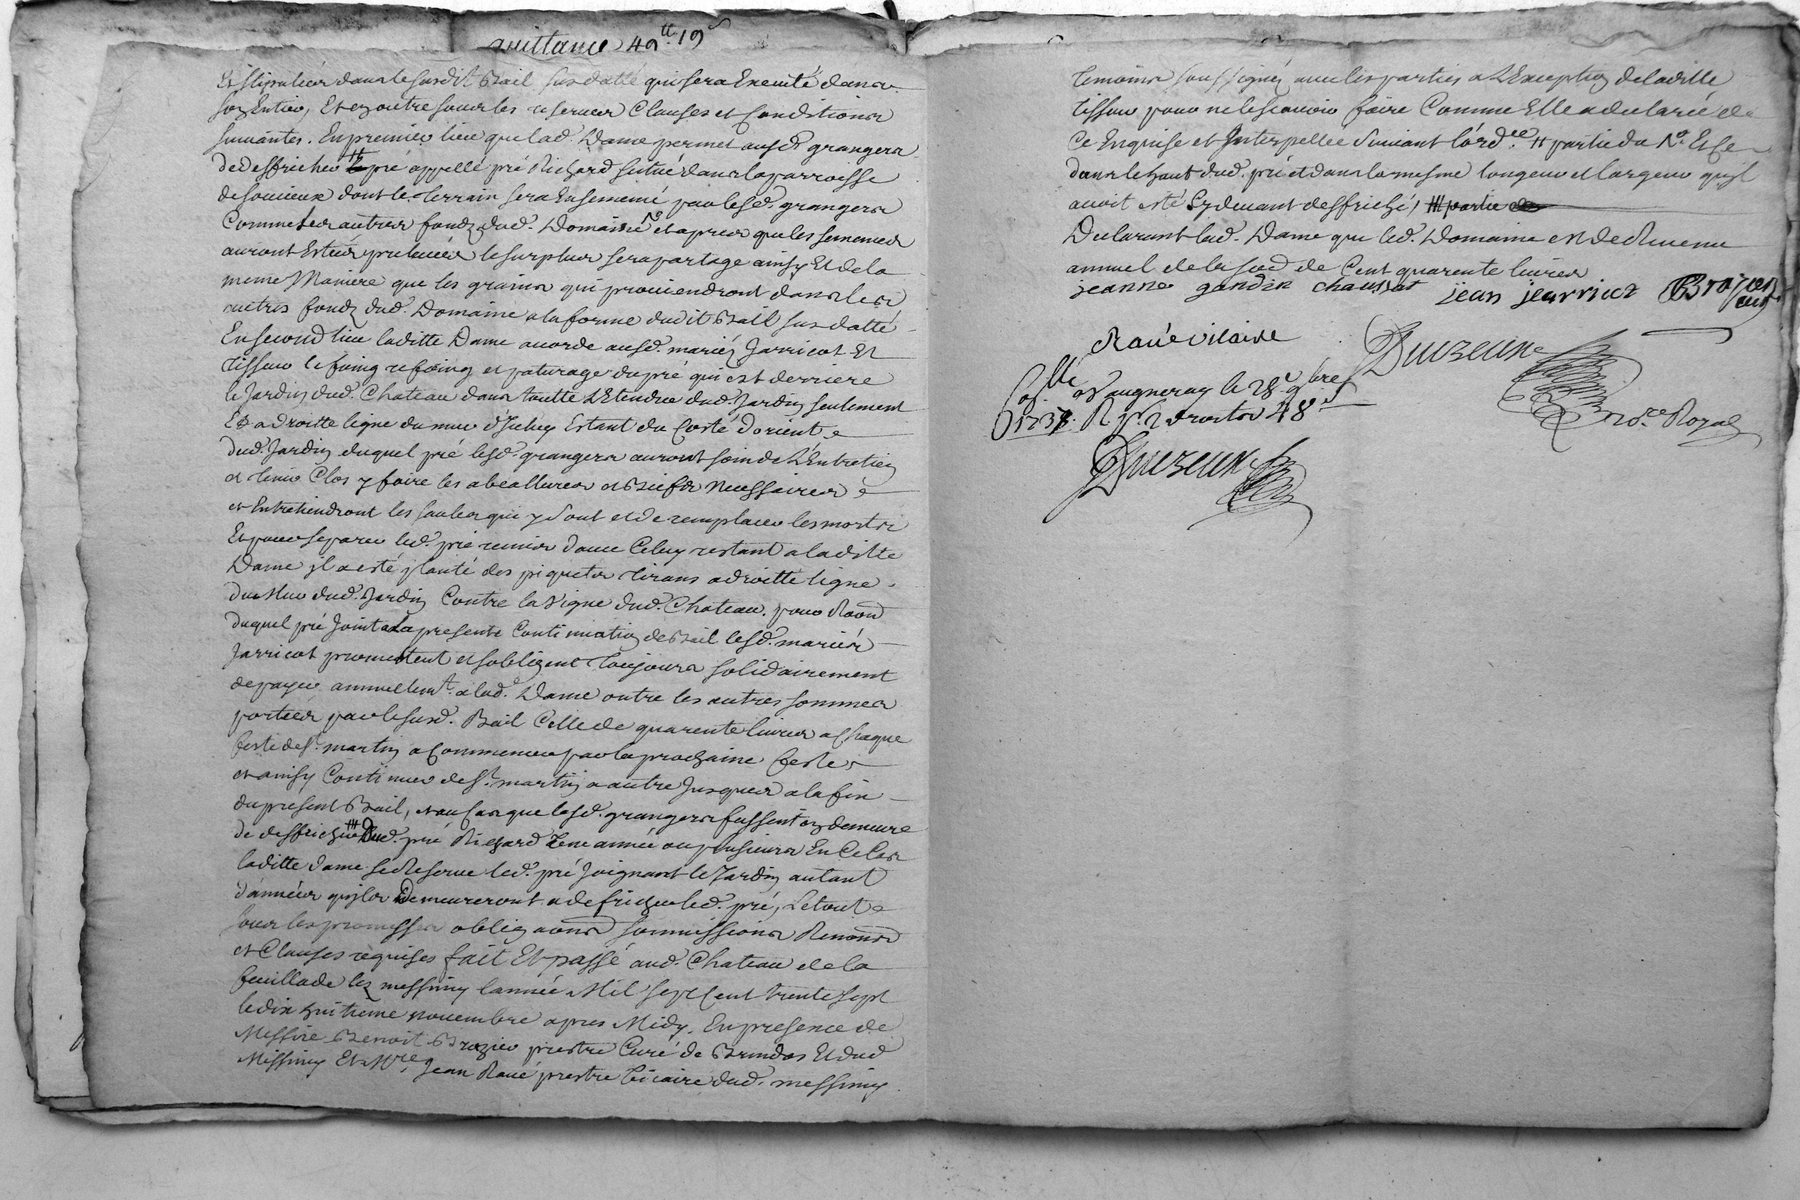 quittance 49tt 19s
Et stipulées dans le susdit Bail sus datté qui sera Executé dans
son Entier, Et en outre sous les reserves Clauses et Conditions
suivantes. En premier lieu que lad. Dame permet ausd. grangers
de deffricher le pré appellé pré Richard situé dans la parroisse
de soucieux dont le terrain sera Ensemencé par lesd. grangers
Comme les autres fonds dud. Domaine et apres que les semences
auront Estées prelevées le surplus sera partagé ainsy Et de la
meme Maniere que les grains qui proviendront dans les
autres fonds dud. Domaine a la forme dudit Bail sus datté
En second lieu laditte Dame accorde ausd. mariés Jarricot Et
Tisseur le foing refoing et paturage du pré qui est derriere
le Jardin dud. Chateau dans toutte L'Etendue dud. Jardin seulement
Et a droitte ligne du mur d'Iceluy Estant du Costé d'orient
dud. Jardin duquel pré lesd. grangers auront soin de L'Entretien
et tenir Clos y faire les abeallures et Biefs necessaires
et Entretiendront les saules qui y sont et de remplacer les morts
Et pour separer led. pré remis d'avec Celuy restant a laditte
Dame il a esté planté des piquets tirans a droitte ligne
du Mur dud. Jardin Contre la Vigne dud. Chateau. pour Raond
duquel pré Joint a La presente Continuation de Bail lesd. mariés
Jarricot promettent et s'obligent toujours solidairement
de payer annuellemt. a lad. Dame outre les autres sommes
portées par le susd. Bail Celle de quarente livres a Chaque
feste de St. martin a Commencer par la prochaine feste
et ainsy Continuer de St. martin a autre Jusques a la fin
du present Bail, et au Cas que lesd. grangers fussent en demeure
de deffricher dud. pré Richard Une année ou plusieurs En Ce Cas
laditte Dame se Reserve led. pré Joignant le Jardin autant
d'années qu'ils Demeureront a defricher led. pré, Le tout
sous les promesses obligaons soumissions Renonsd
et Clauses requises fait Et passé aud. Chateau de la
feuillade lez messimy l'année Mil sept Cent trente sept
le dix huitieme novembre apres Midy. En presence de
Messire Benoit Brazier prestre Curé de Brindas Et dud
Messimy Et Mre. Jean Raué prestre Vicaire dud. messimy
temoins soussignés avec les parties a L'Exception de laditte
tisseur pour ne le scavoir faire Comme Elle a declaré de
Ce Enquise et Interpellée suivant l'ordce. # partie du
dans le haut dud. pré et dans la mesme longeur et largeur qu'il
avoit esté Cy devant deffriché, ### partie
Declarant lad. Dame que led. Domaine est de Revenu
annuel de la sod de Cent quarente livres
jeanne gondin chaussat jean jearricot
Raué vicaire
Duzeux
Collé a Vaugneray le 28e 9bre
1737. R
nore. Royal
Duzeux